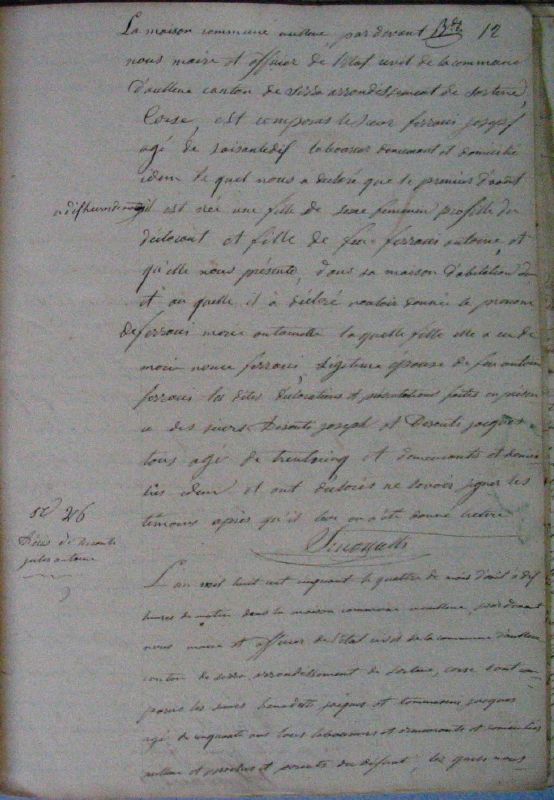 La maison commune aullene par devant 12
nous maire et officier de l'etat civil de la commune
d'aullene canton de Serra arrondissement de Sartene,
Corse, est comparus le sieur ferrari joseph
agé de soisantedix laboureur demeurant et domicilié
idem le quel nous a declaré que le premier d'août
il est née une fille de sexe feminen profille du
declarant et fille de feu ferrari antoine, et
qu'elle nous présente, dans sa maison d'abitation
et au quelle il à déclaré vouloir donnér le prenom
de ferrari marie antoinette la quelle fille elle a eu de
marie ferrari, legitime épouse de feu antoine
ferrari les dites declarations et présentations faites en présen
ce des sieurs joseph et jacques
tous agé de et demeurants et domici
liés idem et ont declarés ne savoir signer les
temoins après qu'il leur en a été donné lecture
N° 26
Décés de
jules antoine
L'an mil huit cent cinquant le quattre de mois d'août à dix
heures de matin dans la maison commune aullene, par devant
nous maire et officier de l'etat civil de la commune d'aullene
canton de serra, arrondissement de Sartene, corse sont com
parus les sieurs benedetti jacques et jacques
agé de cinquante ans tous laboureurs et demeurants et domiciliés
aullene et proches et parents du défunt, les quels nous